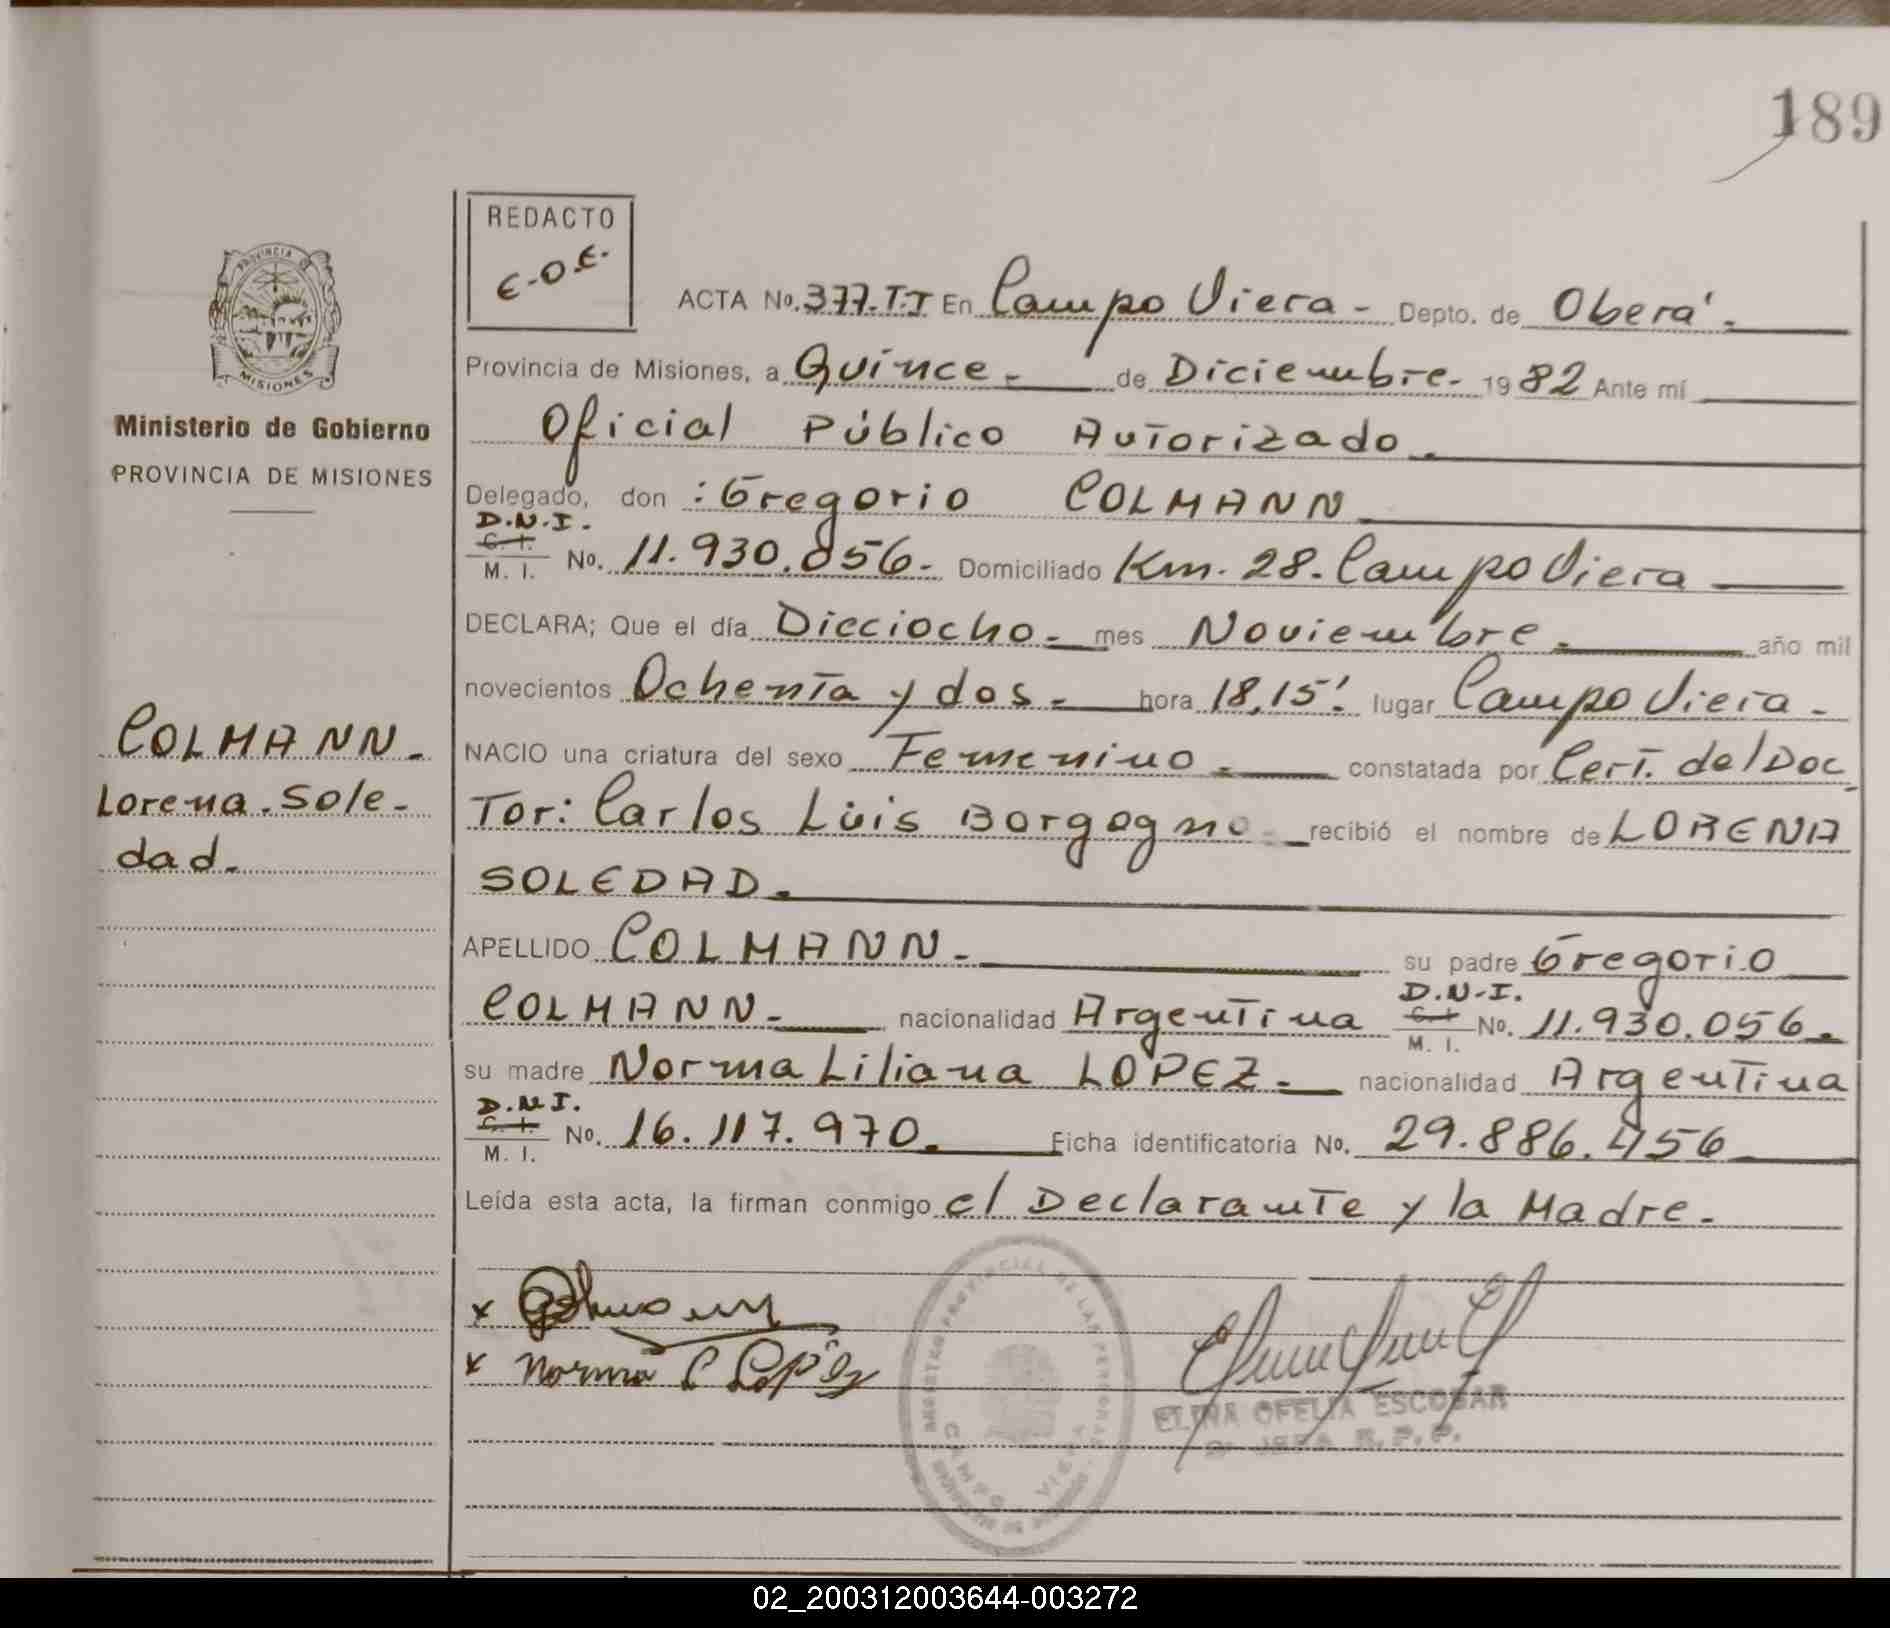 189
REDACTO
E.O.E.
PROVINCIA
MISIONES
Ministerio de Gobierno
PROVINCIA DE MISIONES
COLMANN.
Lorena. Sole-
dad.
ACTA No. 377.T.I En Campo Viera - Depto. de Oberá.
Provincia de Misiones, a Quince. de Diciembre. 1982 Ante mí
Oficial Público Autorizado.
Delegado, don : Gregorio COLMANN
D.N.I.
C. I.
M. I. No. 11.930.056. Domiciliado Km. 28. Campo Viera
DECLARA; Que el día Dieciocho. mes Noviembre. año mil
novecientos Ochenta y dos. hora 18,15'. lugar Campo Viera.
NACIO una criatura del sexo Femenino. constatada por Cert. del Doc
Tor: Carlos Luis Borgogno recibió el nombre de LORENA
SOLEDAD.
APELLIDO COLMANN. su padre Gregorio
COLMANN. nacionalidad Argentina D.N.I. C. I. M. I. No. 11.930.056.
su madre Norma Liliana LOPEZ. nacionalidad Argentina
D.N.I.
C. I.
M. I. No. 16.117.970. Ficha identificatoria No. 29.886.456
Leída esta acta, la firman conmigo el Declarante y la Madre.
x
x Norma L López
REGISTRO PROVINCIAL DE LAS PERSONAS
CAMPO VIERA
ELINA OFELIA ESCOBAR
JEFA R.P.P.
02_200312003644-003272